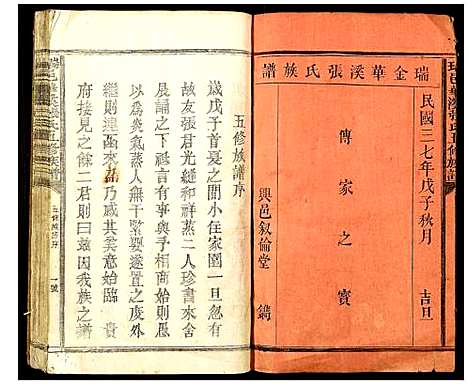 瑞金華溪張氏族譜
民國三七年戊子秋月 吉旦
傳家之寶
興邑敘倫堂 鐫
五修族譜序
歲戊子首夏之間小住家園一旦忽有
故友張君光縫和祥蒸二人珍書來舍
晨誦之下禩言有與予相商始則原
以為炎氣蒸人無干緊要遂置之度外
繼則連函來 品乃感其奚意始臨 貴
府接見之餘二君則曰茲因我族之譜
五修族譜序
一號